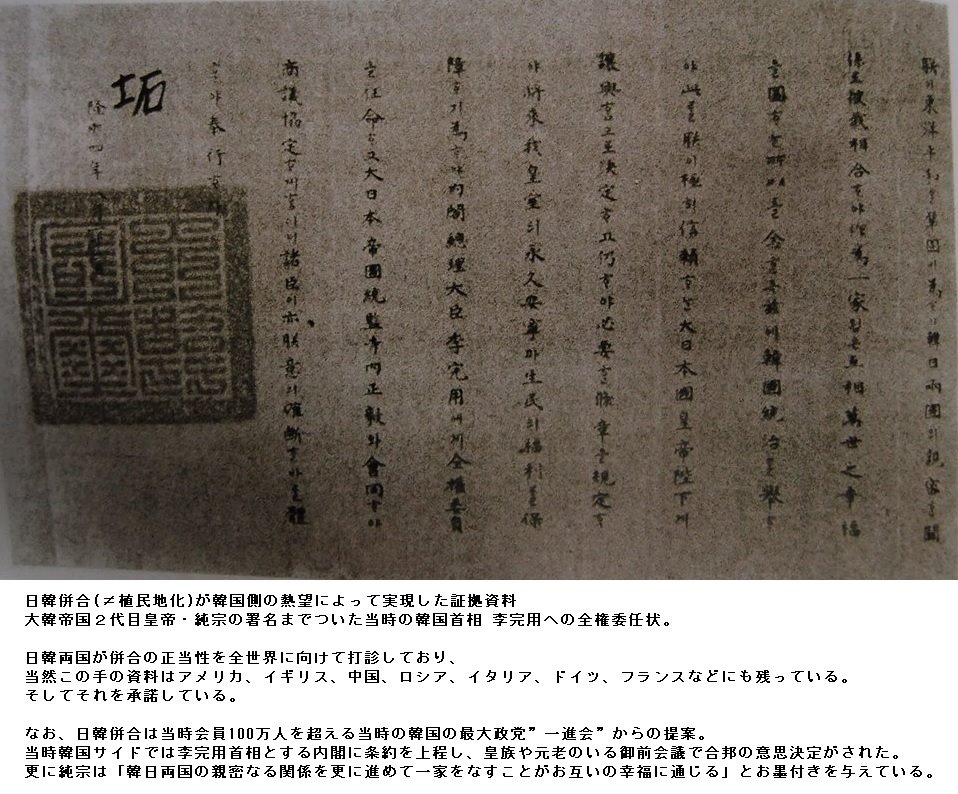 朕이東洋平和를鞏固히爲ᄒᆞ야韓日兩國의親密ᄒᆞᆫ關
係로彼我相合ᄒᆞ야作爲一家ᄒᆞᆷ은互相萬世之幸福
을圖ᄒᆞᄂᆞᆫ所以로念ᄒᆞᆫ즉玆에韓國統治를擧ᄒᆞ
야此를朕이極히信賴ᄒᆞᄂᆞᆫ大日本國皇帝陛下께
讓與ᄒᆞᆷ으로決定ᄒᆞ고仍ᄒᆞ야必要ᄒᆞᆫ條章을規定ᄒᆞ
야將來我皇室의永久安寧과生民의福利를保
障ᄒᆞ기爲ᄒᆞ야內閣總理大臣李完用에게全權委員
을任命ᄒᆞ고大日本帝國統監寺內正毅와會同ᄒᆞ야
商議協定ᄒᆞ게ᄒᆞᄂᆞ니諸臣이亦朕意의確斷ᄒᆞᆫ바를體
ᄒᆞ야奉行
隆熙四年
坧
日韓併合(≠植民地化)が韓国側の熱望によって実現した証拠資料
大韓帝国２代目皇帝・純宗の署名までついた当時の韓国首相 李完用への全権委任状。
日韓両国が併合の正当性を全世界に向けて打診しており、
当然この手の資料はアメリカ、イギリス、中国、ロシア、イタリア、ドイツ、フランスなどにも残っている。
そしてそれを承諾している。
なお、日韓併合は当時会員100万人を超える当時の韓国の最大政党”一進会”からの提案。
当時韓国サイドでは李完用首相とする内閣に条約を上程し、皇族や元老のいる御前会議で合邦の意思決定がされた。
更に純宗は「韓日両国の親密なる関係を更に進めて一家をなすことがお互いの幸福に通じる」とお墨付きを与えている。